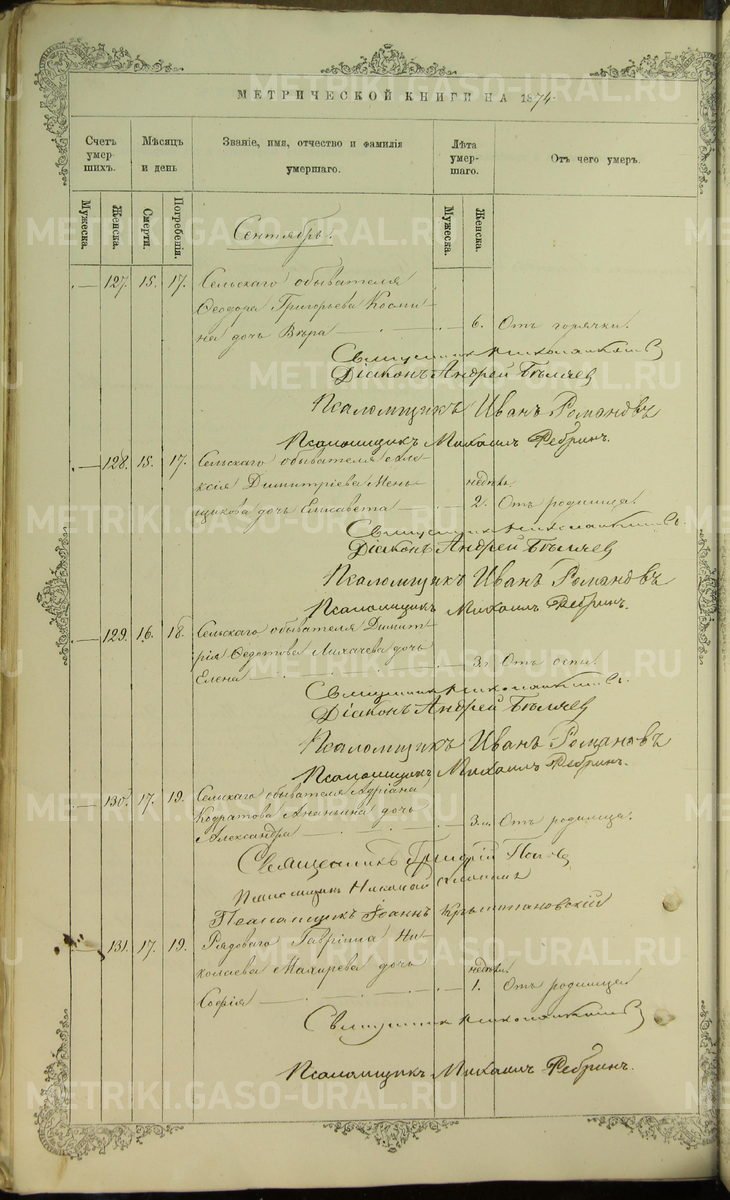 МЕТРИЧЕСКОЙ КНИГИ НА 1874.
Счетъ умершихъ.
Мѣсяцъ и день
Званіе, имя, отчество и фамилія умершаго.
Лѣта умершаго.
Отъ чего умеръ.
Мужеска.
Женска.
Смерти.
Погребенія.
Мужеска.
Женска.
Сентябрь.
— 127. 15. 17. Сельскаго обывателя
Ѳеодора Григорьева Косми-
на дочь Вѣра — 6. Отъ горячки.
Священникъ
Діаконъ Андрей Бѣляев
Псаломщикъ Иванъ Романовъ
Псаломщикъ Михаилъ Ребринъ.
— 128. 15. 17. Сельскаго обывателя Але-
ксія Димитріева Мень-
щикова дочь Елисавета — недѣль 2. Отъ родимца.
Священникъ
Діаконъ Андрей Бѣляев
Псаломщикъ Иванъ Романовъ
Псаломщикъ Михаилъ Ребринъ.
— 129. 16. 18. Сельскаго обывателя Димит-
рія Ѳедотова Лихачева дочь
Елена 3. Отъ оспы.
Священникъ
Діаконъ Андрей Бѣляев
Псаломщикъ Иванъ Романовъ
Псаломщикъ Михаилъ Ребринъ.
— 130. 17. 19. Сельскаго обывателя Адріана
Кодратова Ананьина дочь
Александра — 3 м. Отъ родимца.
Священникъ Григорій Поповъ
Псаломщикъ Николай
Псаломщикъ Іоаннъ
— 131. 17. 19. Рядоваго Гавріила Ни-
колаева Махирева дочь
Софія — недѣли. 1. Отъ родимца
Священникъ
Псаломщикъ Михаилъ Ребринъ.
METRIKI.GASO-URAL.RU